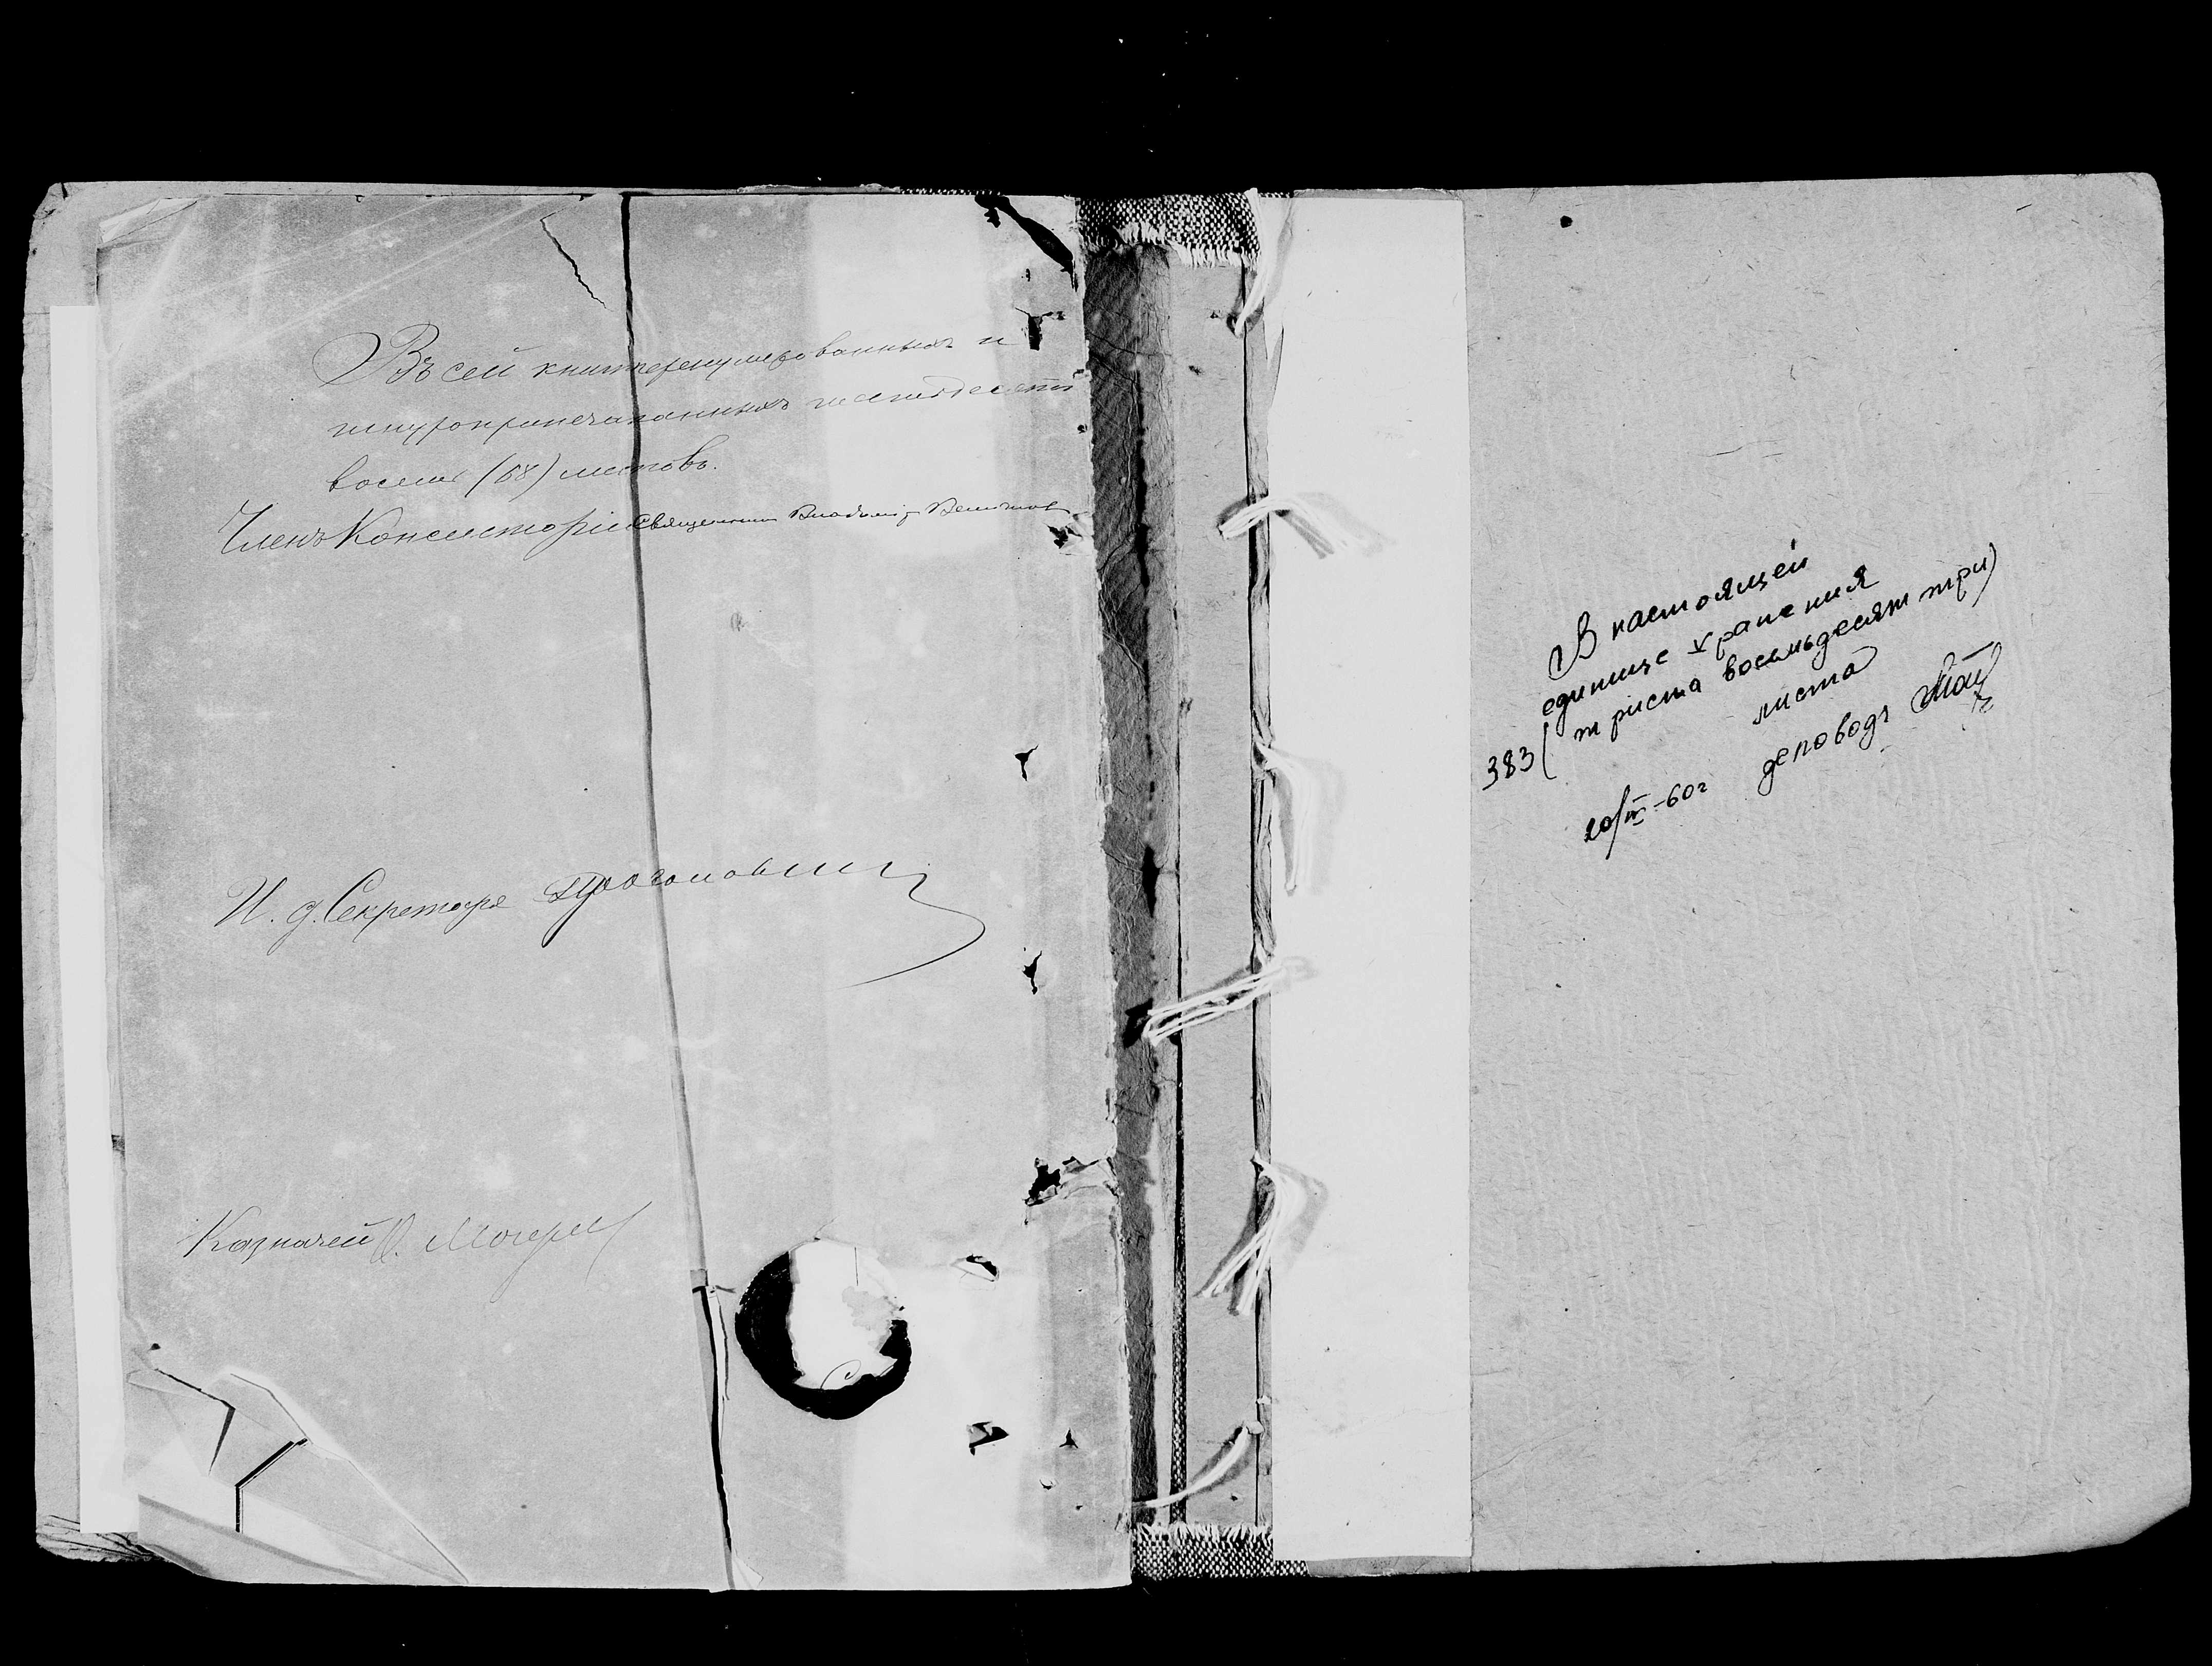 Въ сей книг перенумерованныхъ и
шнуроприпечатанныхъ шестьдесятъ
восемь (68) листовъ.
Членъ Консисторіи Священникъ Владиміръ
И. д. Секретаря
Казначей
В настоящей
единице хранения
383 (триста восемьдесят три)
листа
20/IV-60г деловод